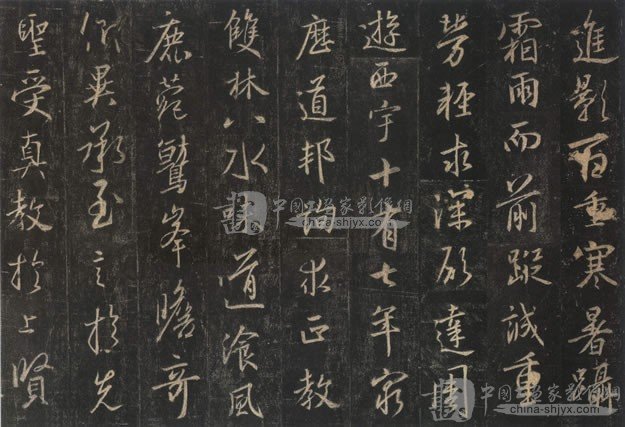 進影百重寒暑躡
霜雨而前蹤誠重
勞輕求深願達周
遊西宇十有七年窮
歷道邦詢求正教
雙林八水味道飡風
鹿菀鷲峯瞻奇
仰異承至言於先
聖受真教於上賢
www.china-shjyx.com
china-shjyx.com